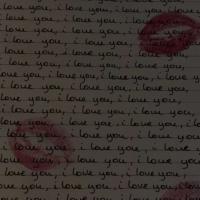 love you, i love you, i love you, i love
i love you, i love you, i love you,
love you, i love you, i love you, i love
i love you, i love you, i love you, i
love you, i love you, i love you, i love
you, i love you, i love you, i love you,
i love you, i love you, i love you, i love
love you, i love you, i love you, i love
i love you, i love you, i love you, i
love you, i love you, i love you, i love
i love you, i love you, i love you,
love you, i love you, i love you, i love you
i love you, i love you, i love you,
love you, i love you, i love you, i love
i love you, i love you, i love you, i
love you, i love you, i love you